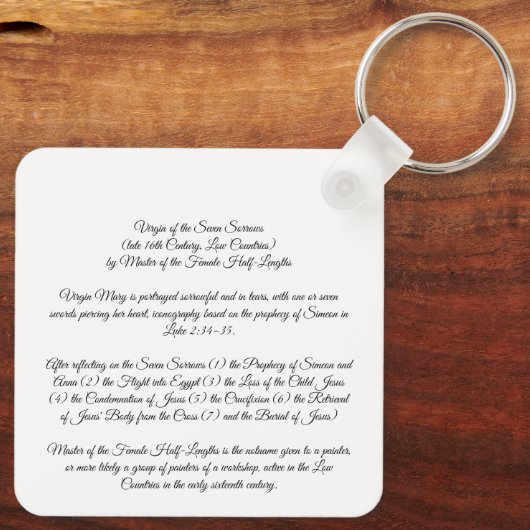 Virgin of the Seven Sorrows
(late 16th Century, Low Countries)
by Master of the Female Half-Lengths
Virgin Mary is portrayed sorrowful and in tears, with one or seven
swords piercing her heart, iconography based on the prophecy of Simeon in
Luke 2:34–35.
After reflecting on the Seven Sorrows (1) the Prophecy of Simeon and
Anna (2) the Flight into Egypt (3) the Loss of the Child Jesus
(4) the Condemnation of Jesus (5) the Crucifixion (6) the Retrieval
of Jesus' Body from the Cross (7) and the Burial of Jesus)
Master of the Female Half-Lengths is the notname given to a painter,
or more likely a group of painters of a workshop, active in the Low
Countries in the early sixteenth century.